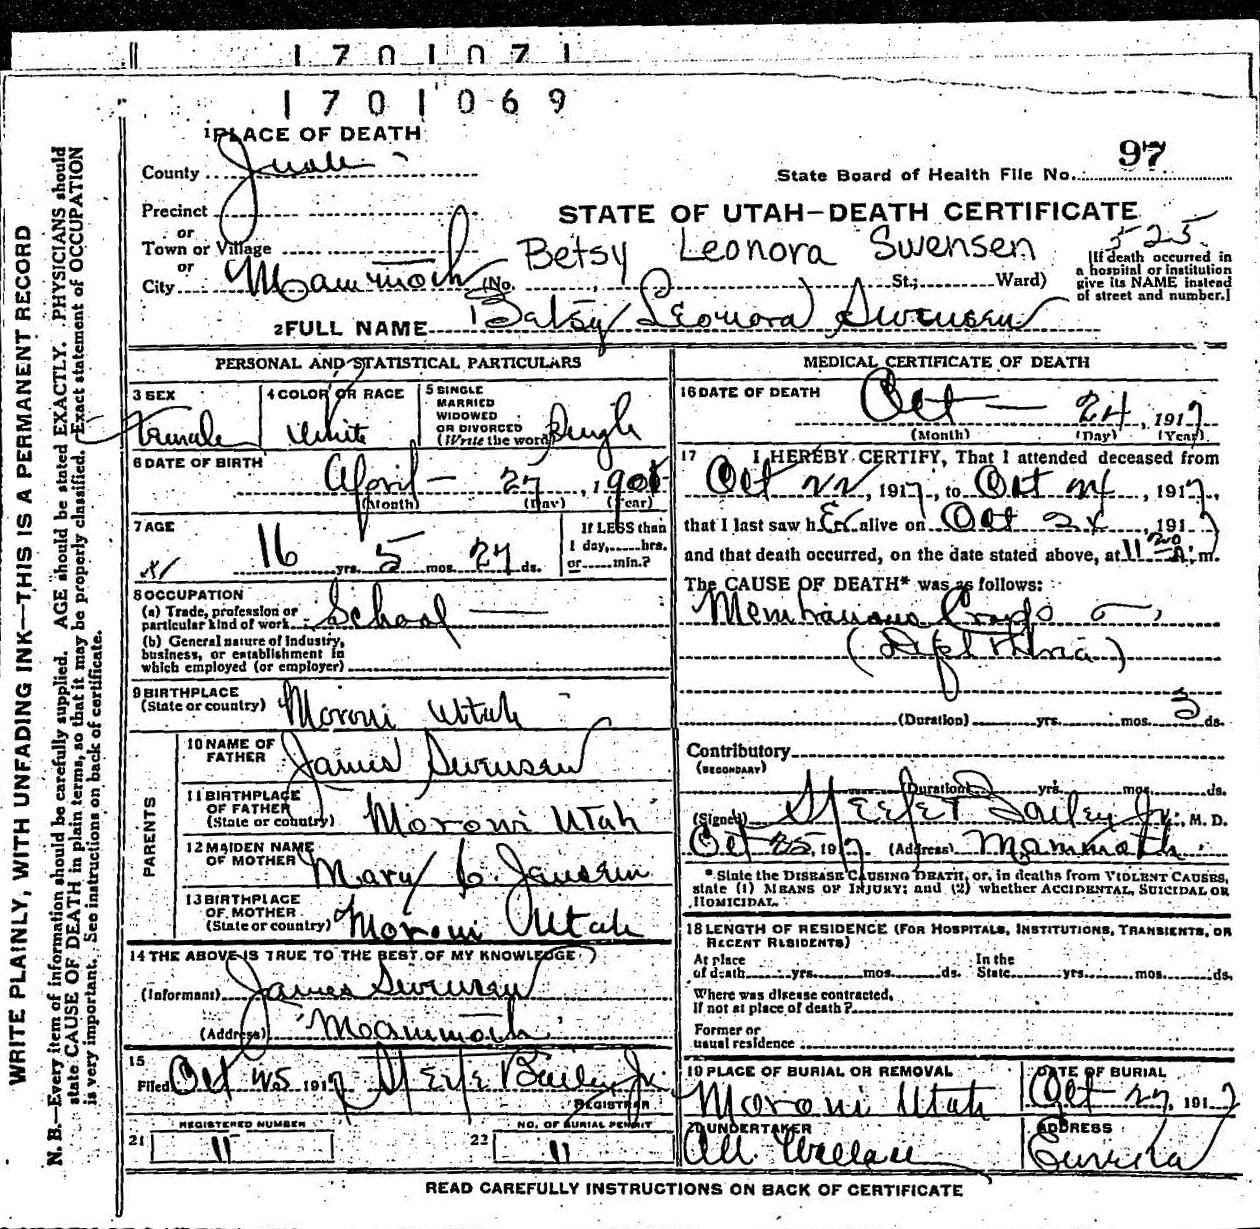 1701071
1701069
1 PLACE OF DEATH
County Juab
97
State Board of Health File No.
Precinct
or
STATE OF UTAH—DEATH CERTIFICATE
Town or Village
or
Betsy Leonora Swensen
525
City Mammoth (No. St.; Ward)
[If death occurred in
a hospital or institution
give its NAME instead
of street and number.]
2 FULL NAME Betsy Leonora Swensen
PERSONAL AND STATISTICAL PARTICULARS
3 SEX
Female
4 COLOR OR RACE
White
5 SINGLE
MARRIED
WIDOWED
OR DIVORCED
(Write the word) Single
6 DATE OF BIRTH
April — 27, 190
(Month) (Day) (Year)
7 AGE
16 yrs. 5 mos. 27 ds.
If LESS than
1 day, hrs.
or min.?
8 OCCUPATION
(a) Trade, profession or
particular kind of work School
(b) General nature of industry,
business, or establishment in
which employed (or employer)
9 BIRTHPLACE
(State or country) Moroni Utah
PARENTS
10 NAME OF
FATHER James Swensen
11 BIRTHPLACE
OF FATHER
(State or country) Moroni Utah
12 MAIDEN NAME
OF MOTHER Mary C. Jansen
13 BIRTHPLACE
OF MOTHER
(State or country) Moroni Utah
14 THE ABOVE IS TRUE TO THE BEST OF MY KNOWLEDGE
(Informant) James Swensen
(Address) Mammoth
15
Filed Oct 25 1917 Bailey Jr.
REGISTRAR
REGISTERED NUMBER
21 11
NO. OF BURIAL PERMIT
22 11
MEDICAL CERTIFICATE OF DEATH
16 DATE OF DEATH
Oct — 24, 1917
(Month) (Day) (Year)
17 I HEREBY CERTIFY, That I attended deceased from
Oct 22, 1917, to Oct 24, 1917,
that I last saw her alive on Oct 24, 1917
and that death occurred, on the date stated above, at 11 20 A. m.
The CAUSE OF DEATH* was as follows:
Membranous Croup
(Diphtheria)
(Duration) yrs. mos. 3 ds.
Contributory
(SECONDARY)
(Duration) yrs. mos. ds.
(Signed) Bailey Jr., M. D.
Oct 25, 1917 (Address) Mammoth
* State the DISEASE CAUSING DEATH, or, in deaths from VIOLENT CAUSES,
state (1) MEANS OF INJURY; and (2) whether ACCIDENTAL, SUICIDAL OR
HOMICIDAL.
18 LENGTH OF RESIDENCE (FOR HOSPITALS, INSTITUTIONS, TRANSIENTS, OR
RECENT RESIDENTS)
At place
of death yrs. mos. ds.
In the
State yrs. mos. ds.
Where was disease contracted,
If not at place of death?
Former or
usual residence
19 PLACE OF BURIAL OR REMOVAL
Moroni Utah
DATE OF BURIAL
Oct 27, 1917
20 UNDERTAKER
ADDRESS
Eureka
READ CAREFULLY INSTRUCTIONS ON BACK OF CERTIFICATE
WRITE PLAINLY, WITH UNFADING INK—THIS IS A PERMANENT RECORD
N. B.—Every item of information should be carefully supplied. AGE should be stated EXACTLY. PHYSICIANS should
state CAUSE OF DEATH in plain terms, so that it may be properly classified. Exact statement of OCCUPATION
is very important. See instructions on back of certificate.